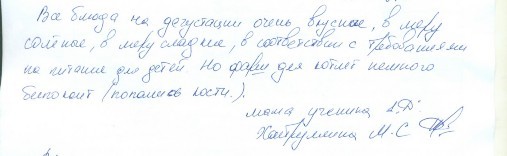 Все блюда на дегустации очень вкусные, в меру
солёные, в меру сладкие, в соответствии с требованиями
на питание для детей Но фарш для котлет немного
(попались кости.).
мама ученика 2 "Д"
Хайруллина М.С